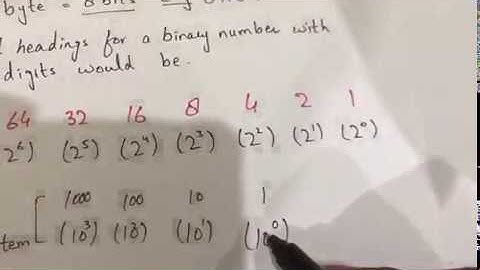 byte = 8 bits
headings for a binary number with
digits would be.
64 32 16 8 4 2 1
2⁶) (2⁵) (2⁴) (2³) (2²) (2¹) (2⁰)
1000 100 10 1
tem (10³) (10²) (10¹) (10⁰)